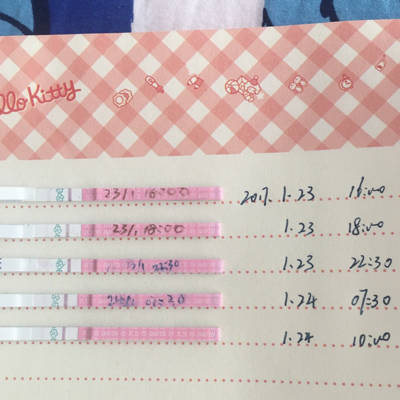 llo Kitty
23/1 16:00 2017.1.23 16:00
23/1 18:00 1.23 18:00
22:30 1.23 22:30
07:30 1.24 07:30
1.24 10:00